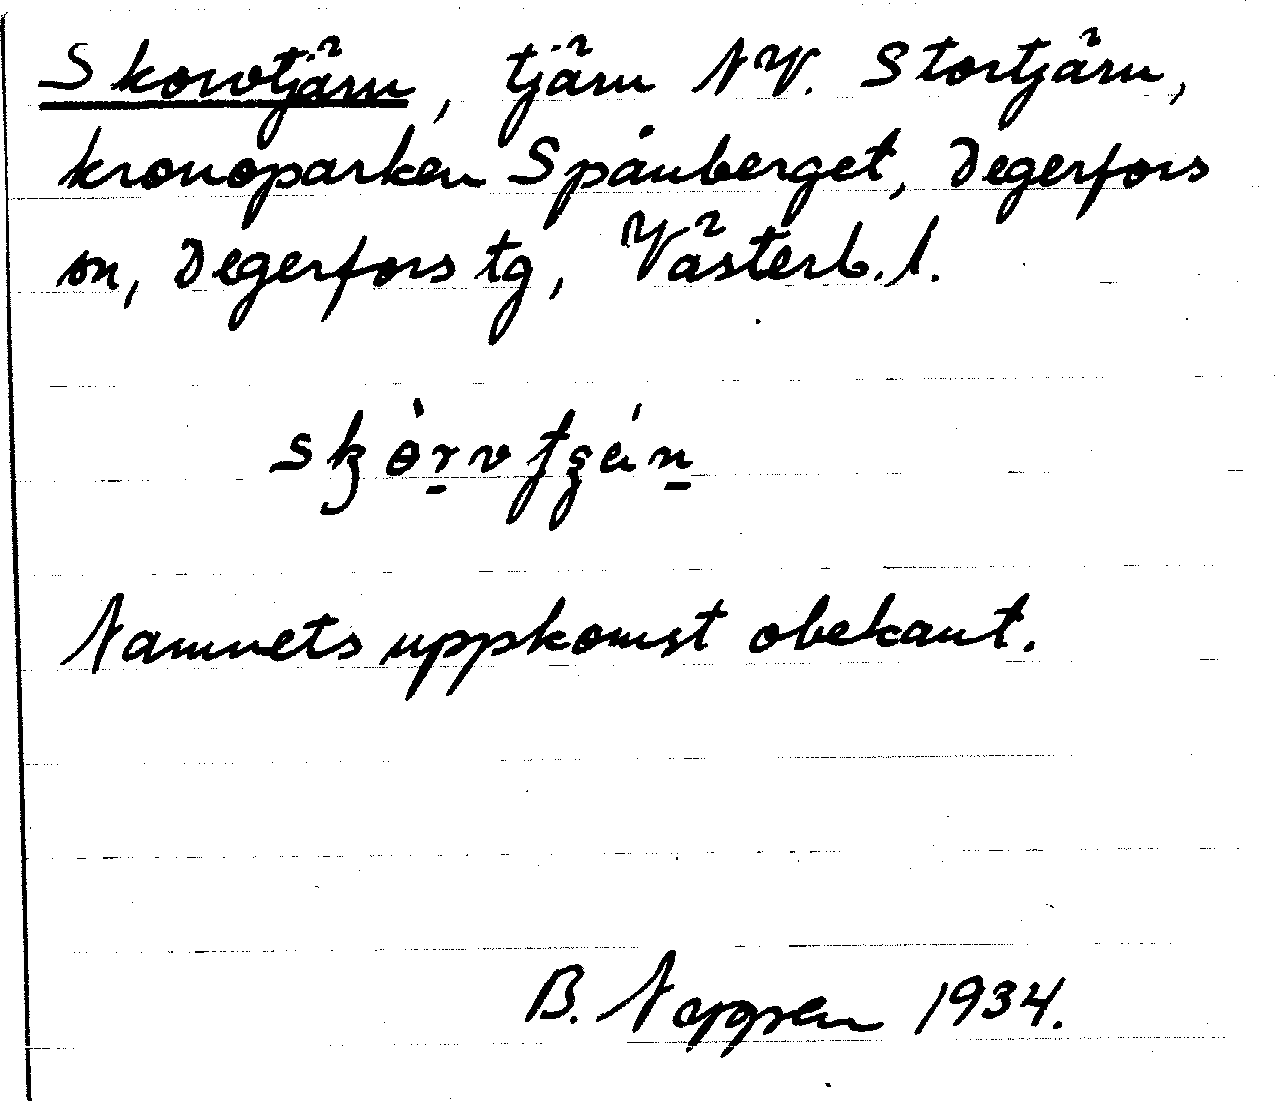 Skorvtjärn, tjärn NV. Stortjärn,
kronoparken Spånberget, Degerfors
sn, Degerfors tg, Västerb. l.
Namnets uppkomst obekant.
B. 1934.